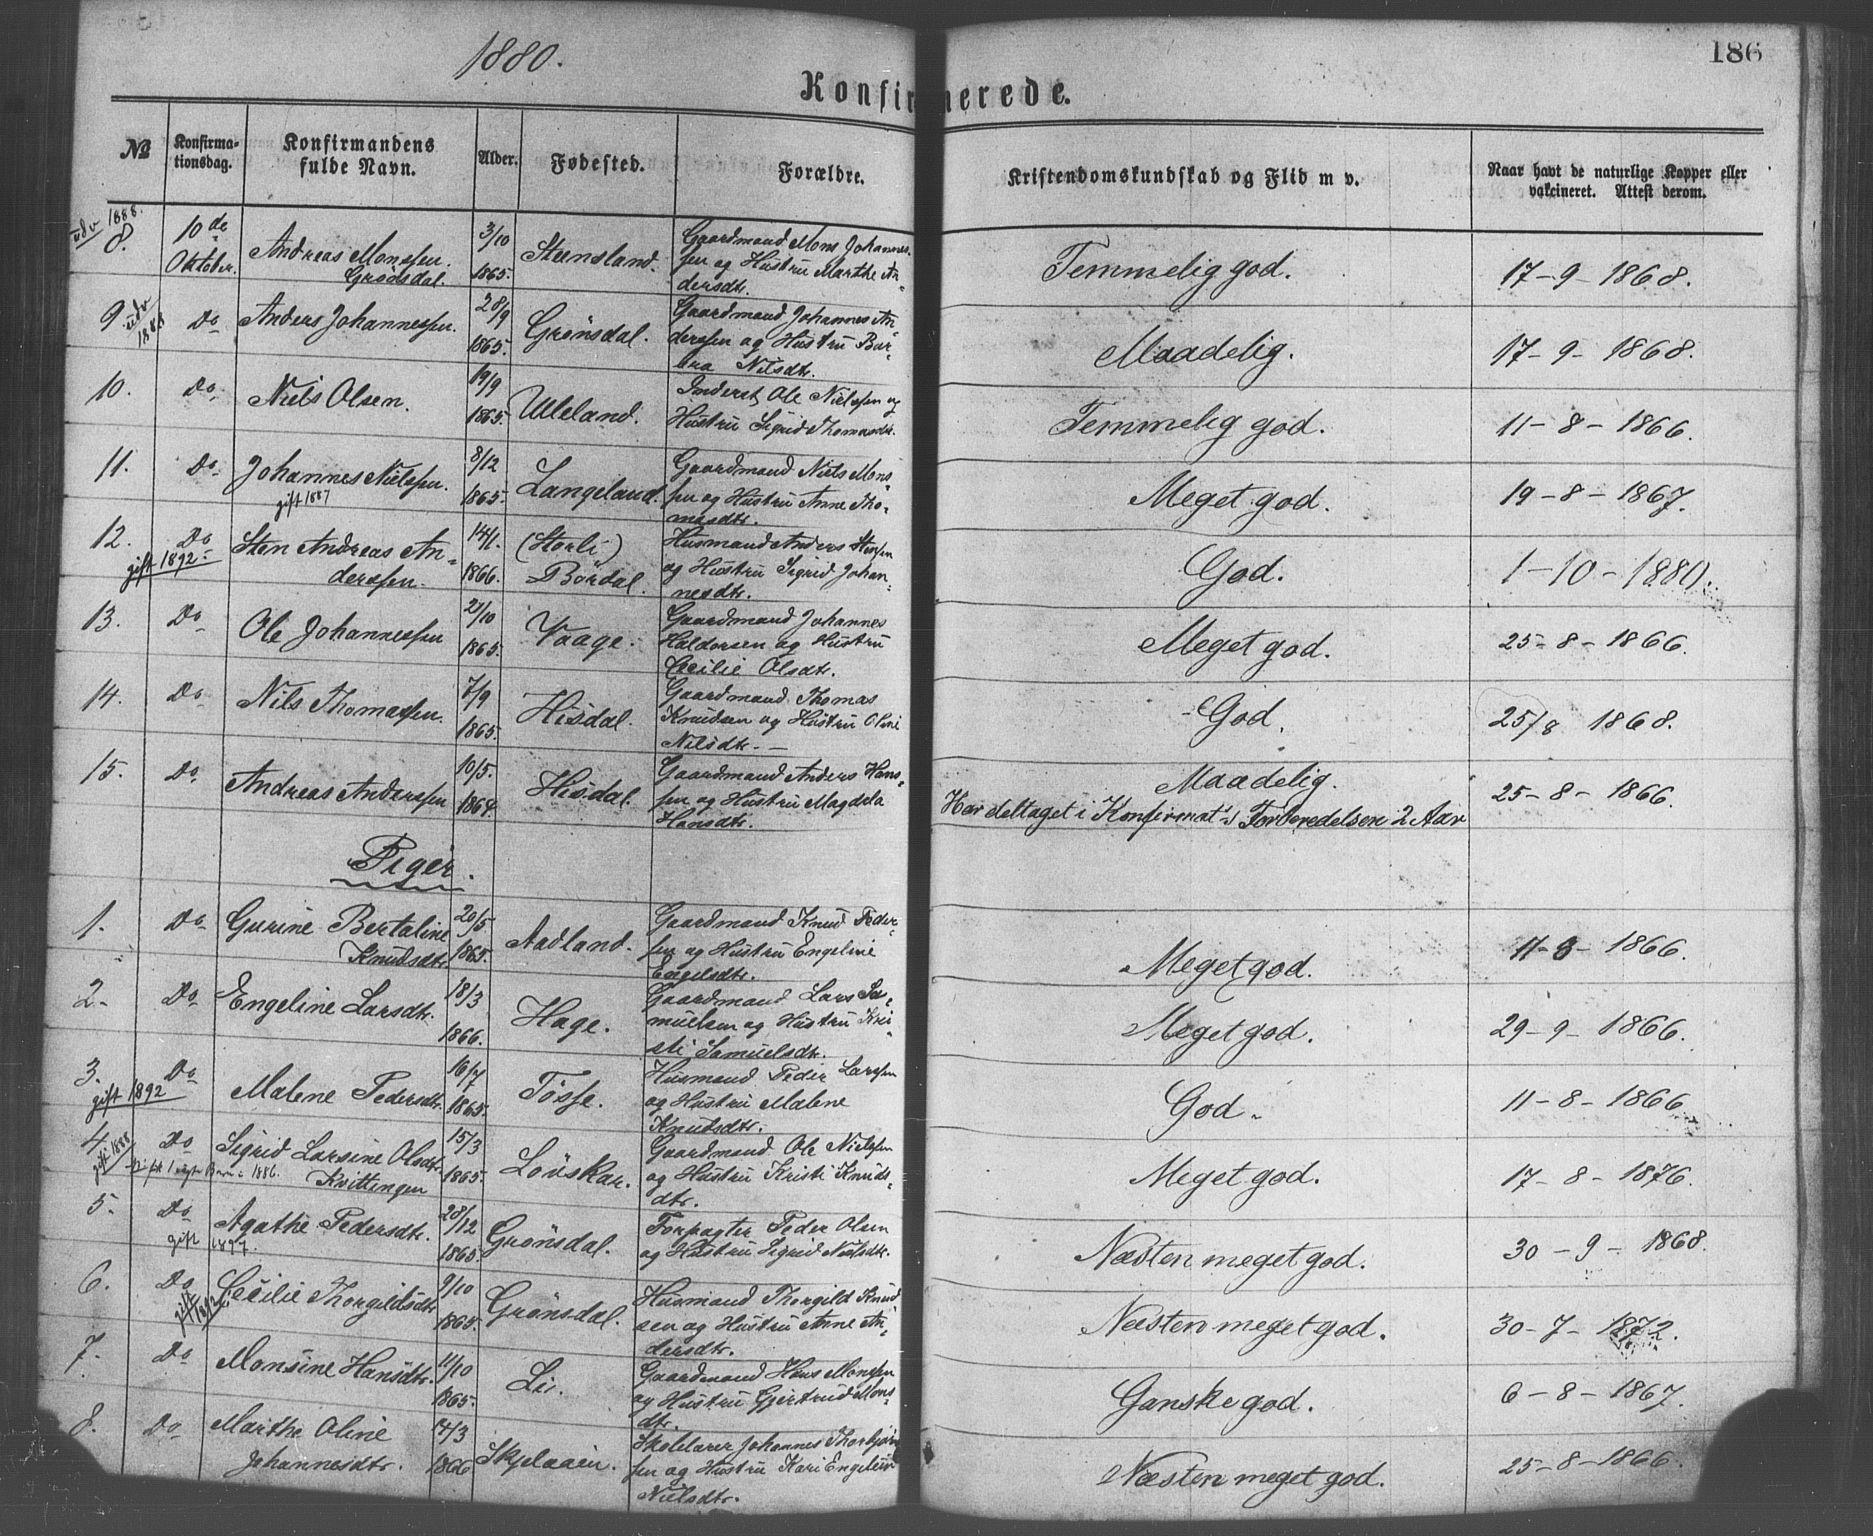 1880.
186
Konfirmerede.
№ Konfirma-tionsdag. Konfirmandens fulde Navn. Alder. Fødested. Forældre. Kristendomskundskab og Flid m v. Naar havt de naturlige Kopper eller vakcineret. Attest derom.
udv 1888.
8. 10de Oktober. Andreas Monssen Grødsdal. 3/10 1865. Steensland. Gaardmand Mons Johannes-
sen og Hustru Marthe An-
dersdtr. Temmelig god. 17-9-1868.
9 udv 1888 Do Anders Johannessen. 28/9 1865. Grønsdal. Gaardmand Johannes An-
derssen og Hustru Bar-
bra Nilsdtr. Maadelig. 17-9-1868.
10. Do Niels Olsen. 19/9 1865. Ulleland. Inderst Ole Nielssen og
Hustru Sigrid Thomasdtr. Temmelig god. 11-8-1866.
11. Do Johannes Nielssen. gift 1887 8/12 1865. Langeland. Gaardmand Niels Mons-
sen og Hustru Anne Tho-
masdtr. Meget god. 19-8-1867.
12. Do gift 1892 Sten Andreas An-
derssen. 14/1. 1866. (Storli) Børdal. Husmand Anders Stensen
og Hustru Sigrid Johan-
nesdtr. God. 1-10-1880.
13. Do Ole Johannessen 2/10 1865. Vaage. Gaardmand Johannes
Haldorsen og Hustru
Cecilie Olsdtr. Meget god. 25-8-1866.
14. Do Nils Thomassen. 7/9 1865. Hisdal. Gaardmand Thomas
Knudsen og Hustru Oline
Nilsdtr. God. 25/8 1868.
15. Do Andreas Anderssen 10/5. 1864. Hisdal. Gaardmand Anders Hans-
sen og Hustru Magdela
Hansdtr. Maadelig. 25-8-1866.
Har deltaget i Konfirmat's Forberedelsen 2 Aar
Piger.
1. Do Gurine Bertaline
Knudsdtr. 20/5 1865. Aadland. Gaardmand Knud Peder-
sen og Hustru Engeline
Engelsdtr. Meget god. 11-8-1866.
2. Do Engeline Larsdtr. 18/3 1866. Hage. Gaardmand Lars Sa-
muelsen og Hustru Kri-
sti Samuelsdtr. Meget god. 29-9-1866.
3. Do gift 1892 Malene Pedersdtr. 16/7 1865. Tøsse. Husmand Peder Larssen
og Hustru Malene
Knutsdtr. God. 11-8-1866
4 gift 1888 Do Sigrid Larsine Olsdtr.
Kvittingen 1886. 15/3 1865. Løvskar. Gaardmand Ole Nielssen
og Hustru Kristi Knuds-
dtr. Meget god. 17-8-1876.
5. Do gift 1897. Agathe Pedersdtr. 28/12 1865. Grønsdal. Forpagter Peder Olsen
og Hustru Sigrid Nielsdtr. Næsten meget god. 30-9-1868.
6. Do gift 1892 Cecilie Thorgildsdtr. 9/10 1865. Grønsdal. Husmand Thorgild Knud-
sen og Hustru Anne An-
dersdtr. Næsten meget god. 30-7-1872.
7. Do Monsine Hansdtr. 11/10 1865. Li. Gaardmand Hans Monssen
og Hustru Gjertrud Mons-
dtr. Ganske god. 6-8-1867.
8. Do Marthe Oline
Johannesdtr. 14/3 1866 Skjelaaen. Skolelærer Johannes Thorbjørn-
sen og Hustru Kari Engeline
Nielsdtr. Næsten meget god. 25-8-1866.